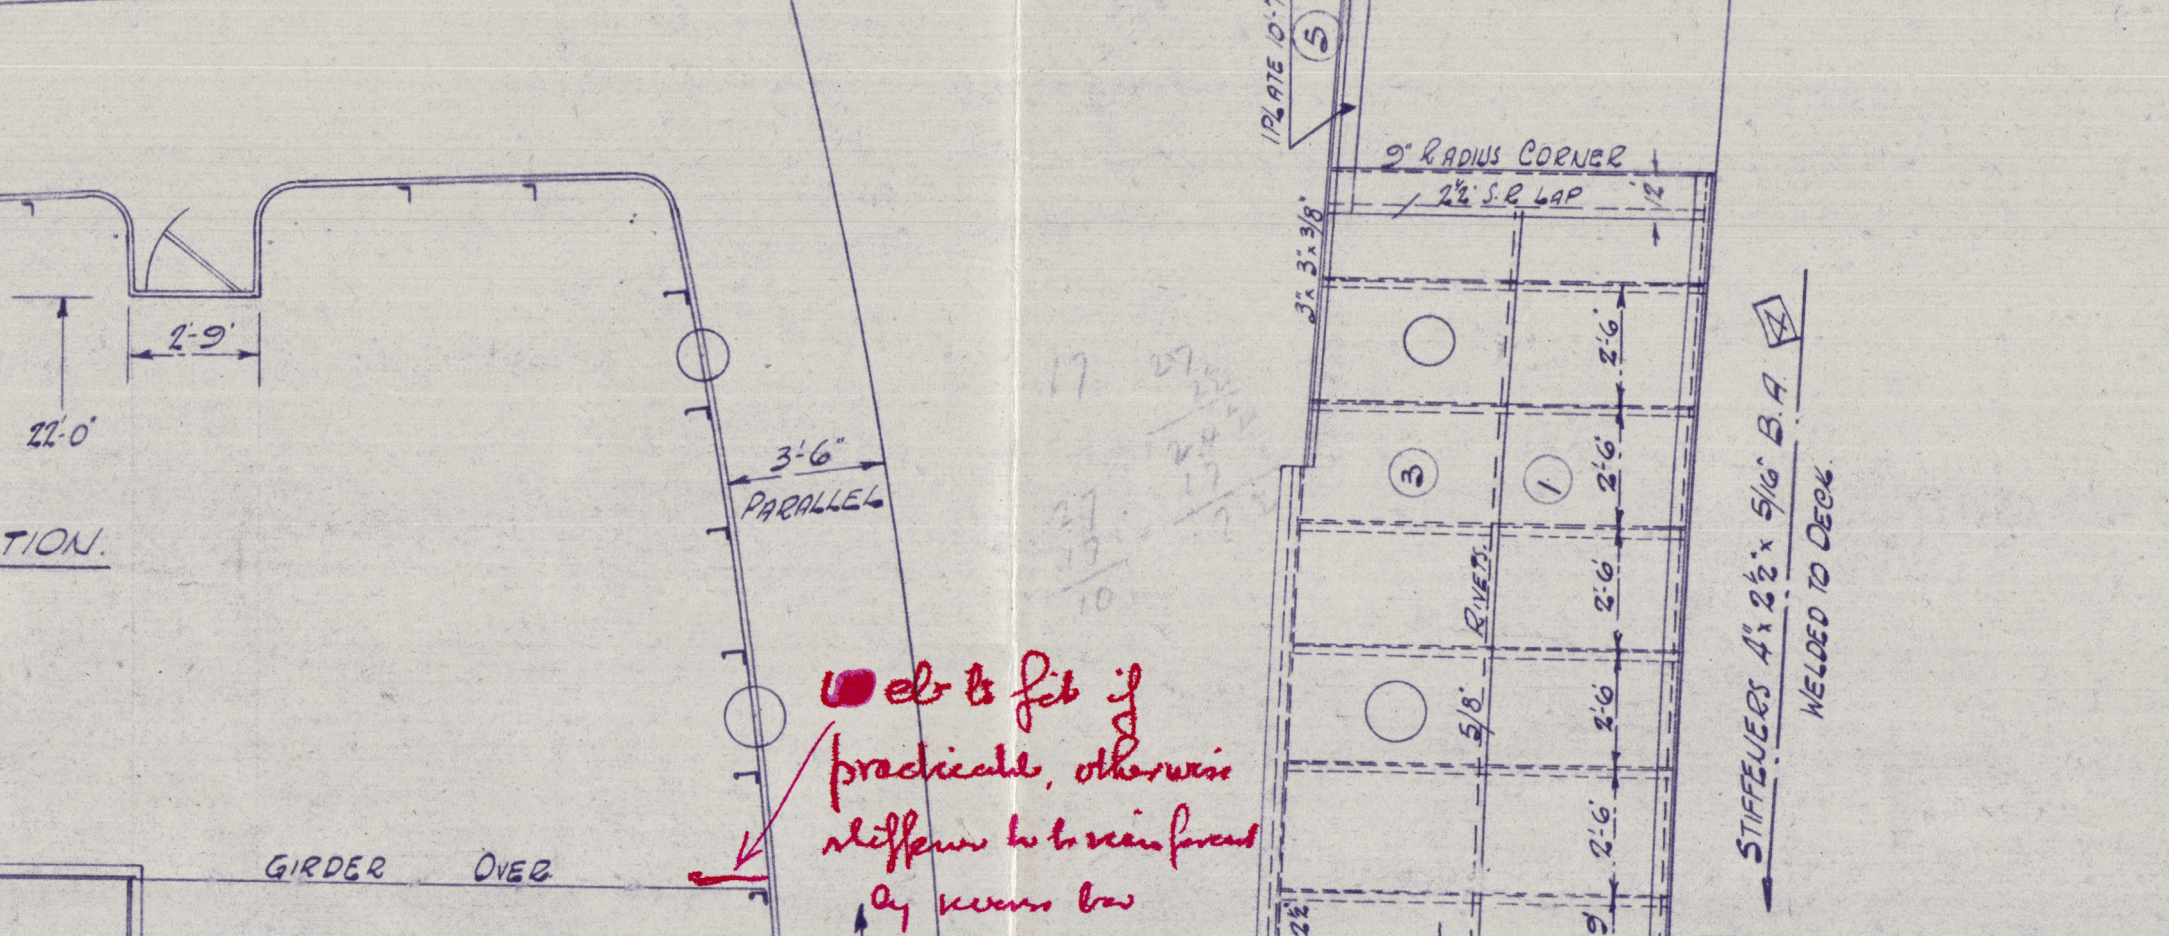 2'-9"
22'-0"
TION.
3'-6"
PARALLEL
GIRDER OVER
to fit if
practicable, otherwise
stiffener to be reinforced
by reverse bar
17
27
24
17
27
10
1 PLATE 10'-7
5
9" RADIUS CORNER
2½" S.R. LAP
12"
3" x 3" x 3/8"
2'-6"
3
1
2'-6"
2'-6"
2'-6"
2'-6"
9"
5/8" RIVETS.
2½"
STIFFENERS 4" x 2½" x 5/16" B.A. 4
WELDED TO DECK.